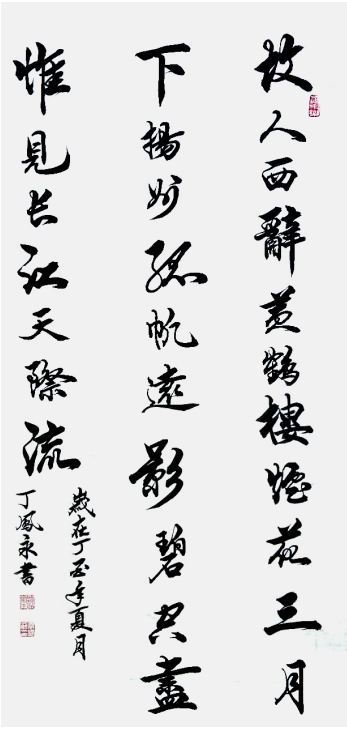 故人西辭黄鶴樓煙花三月
下揚州孤帆遠影碧空盡
惟見长江天際流
歲在丁酉年夏月
丁鳳永書